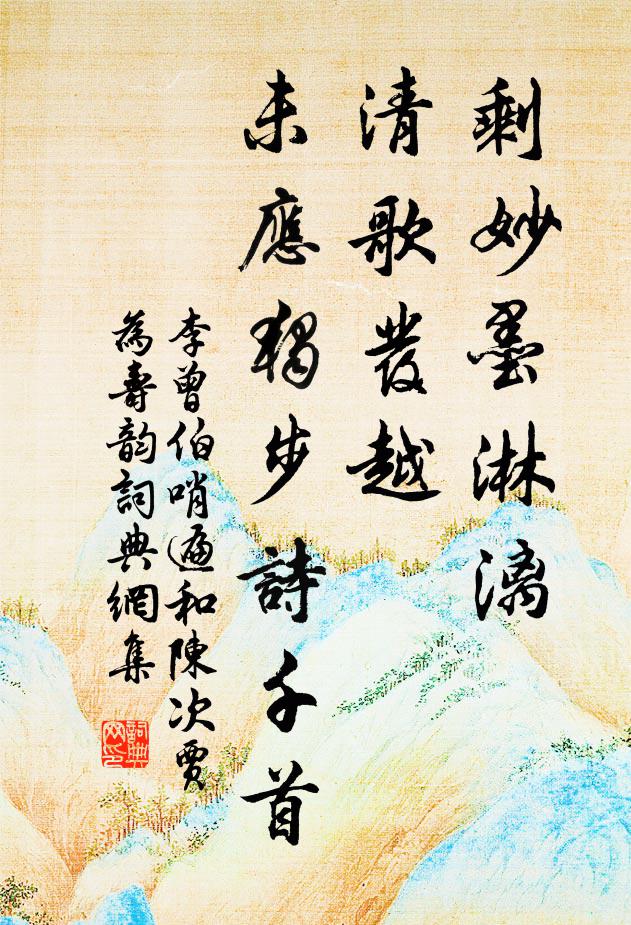 剩妙墨淋漓
清歌發越
未應獨步詩千首
李曾伯哨遍和陳次賈
為壽韵詞典網集
詞典网印